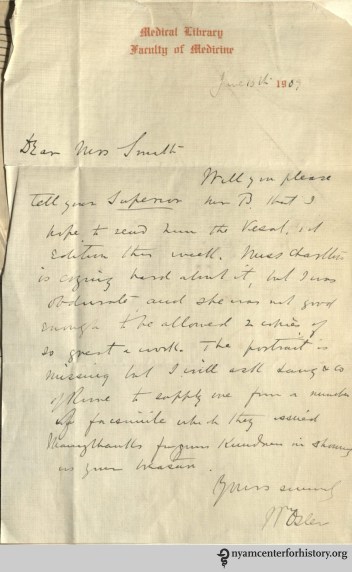 Medical Library
Faculty of Medicine
June 13th 1909
Dear Miss Smith
Will you please
tell your Superior Mr B that I
hope to send him the Vesal. 1st
edition this week. Miss Charlton
is crying hard about it, but I was
obdurate and she was not good
enough to be allowed 2 copies of
so great a work. The portrait is
missing but I will ask Lang & Co
of Rome to supply one from a number
of facsimile which they issued
Many thanks for your kindness in showing
us your treasures.
Yours sincerely
Wm Osler
nyamcenterforhistory.org